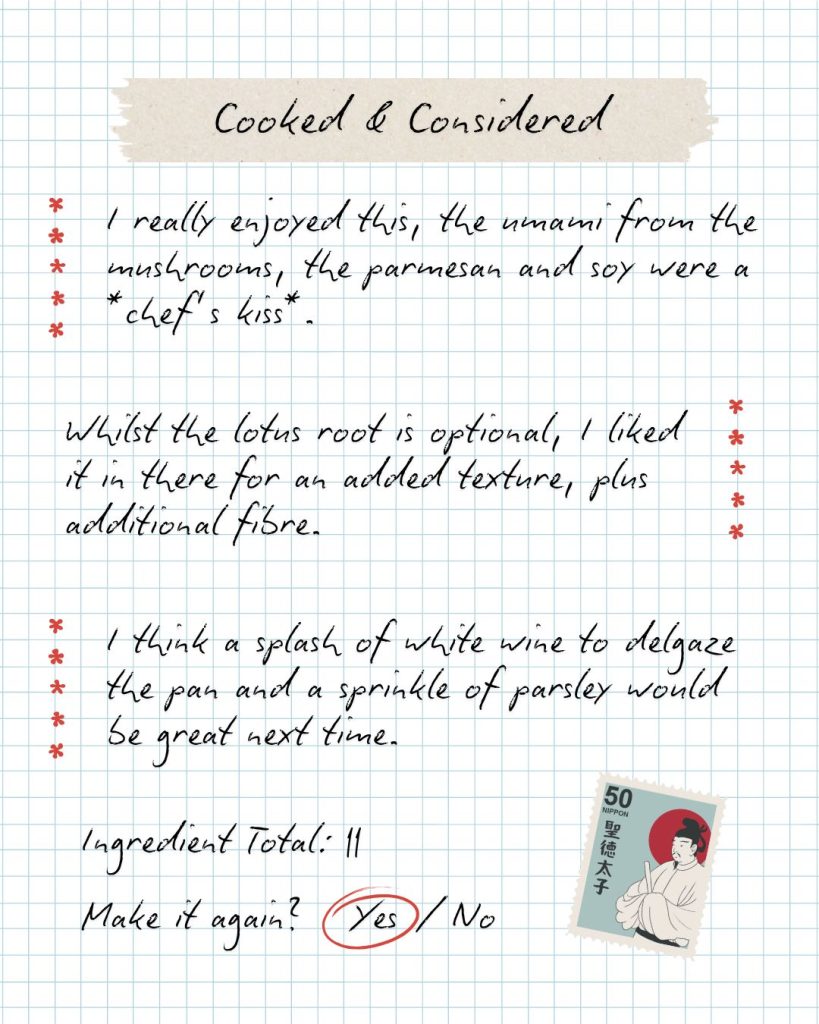 Cooked & Considered
I really enjoyed this, the umami from the
mushrooms, the parmesan and soy were a
*chef's kiss*.
Whilst the lotus root is optional, I liked
it in there for an added texture, plus
additional fibre.
I think a splash of white wine to delgaze
the pan and a sprinkle of parsley would
be great next time.
Ingredient Total: 11
Make it again? Yes / No
50
NIPPON
聖徳太子